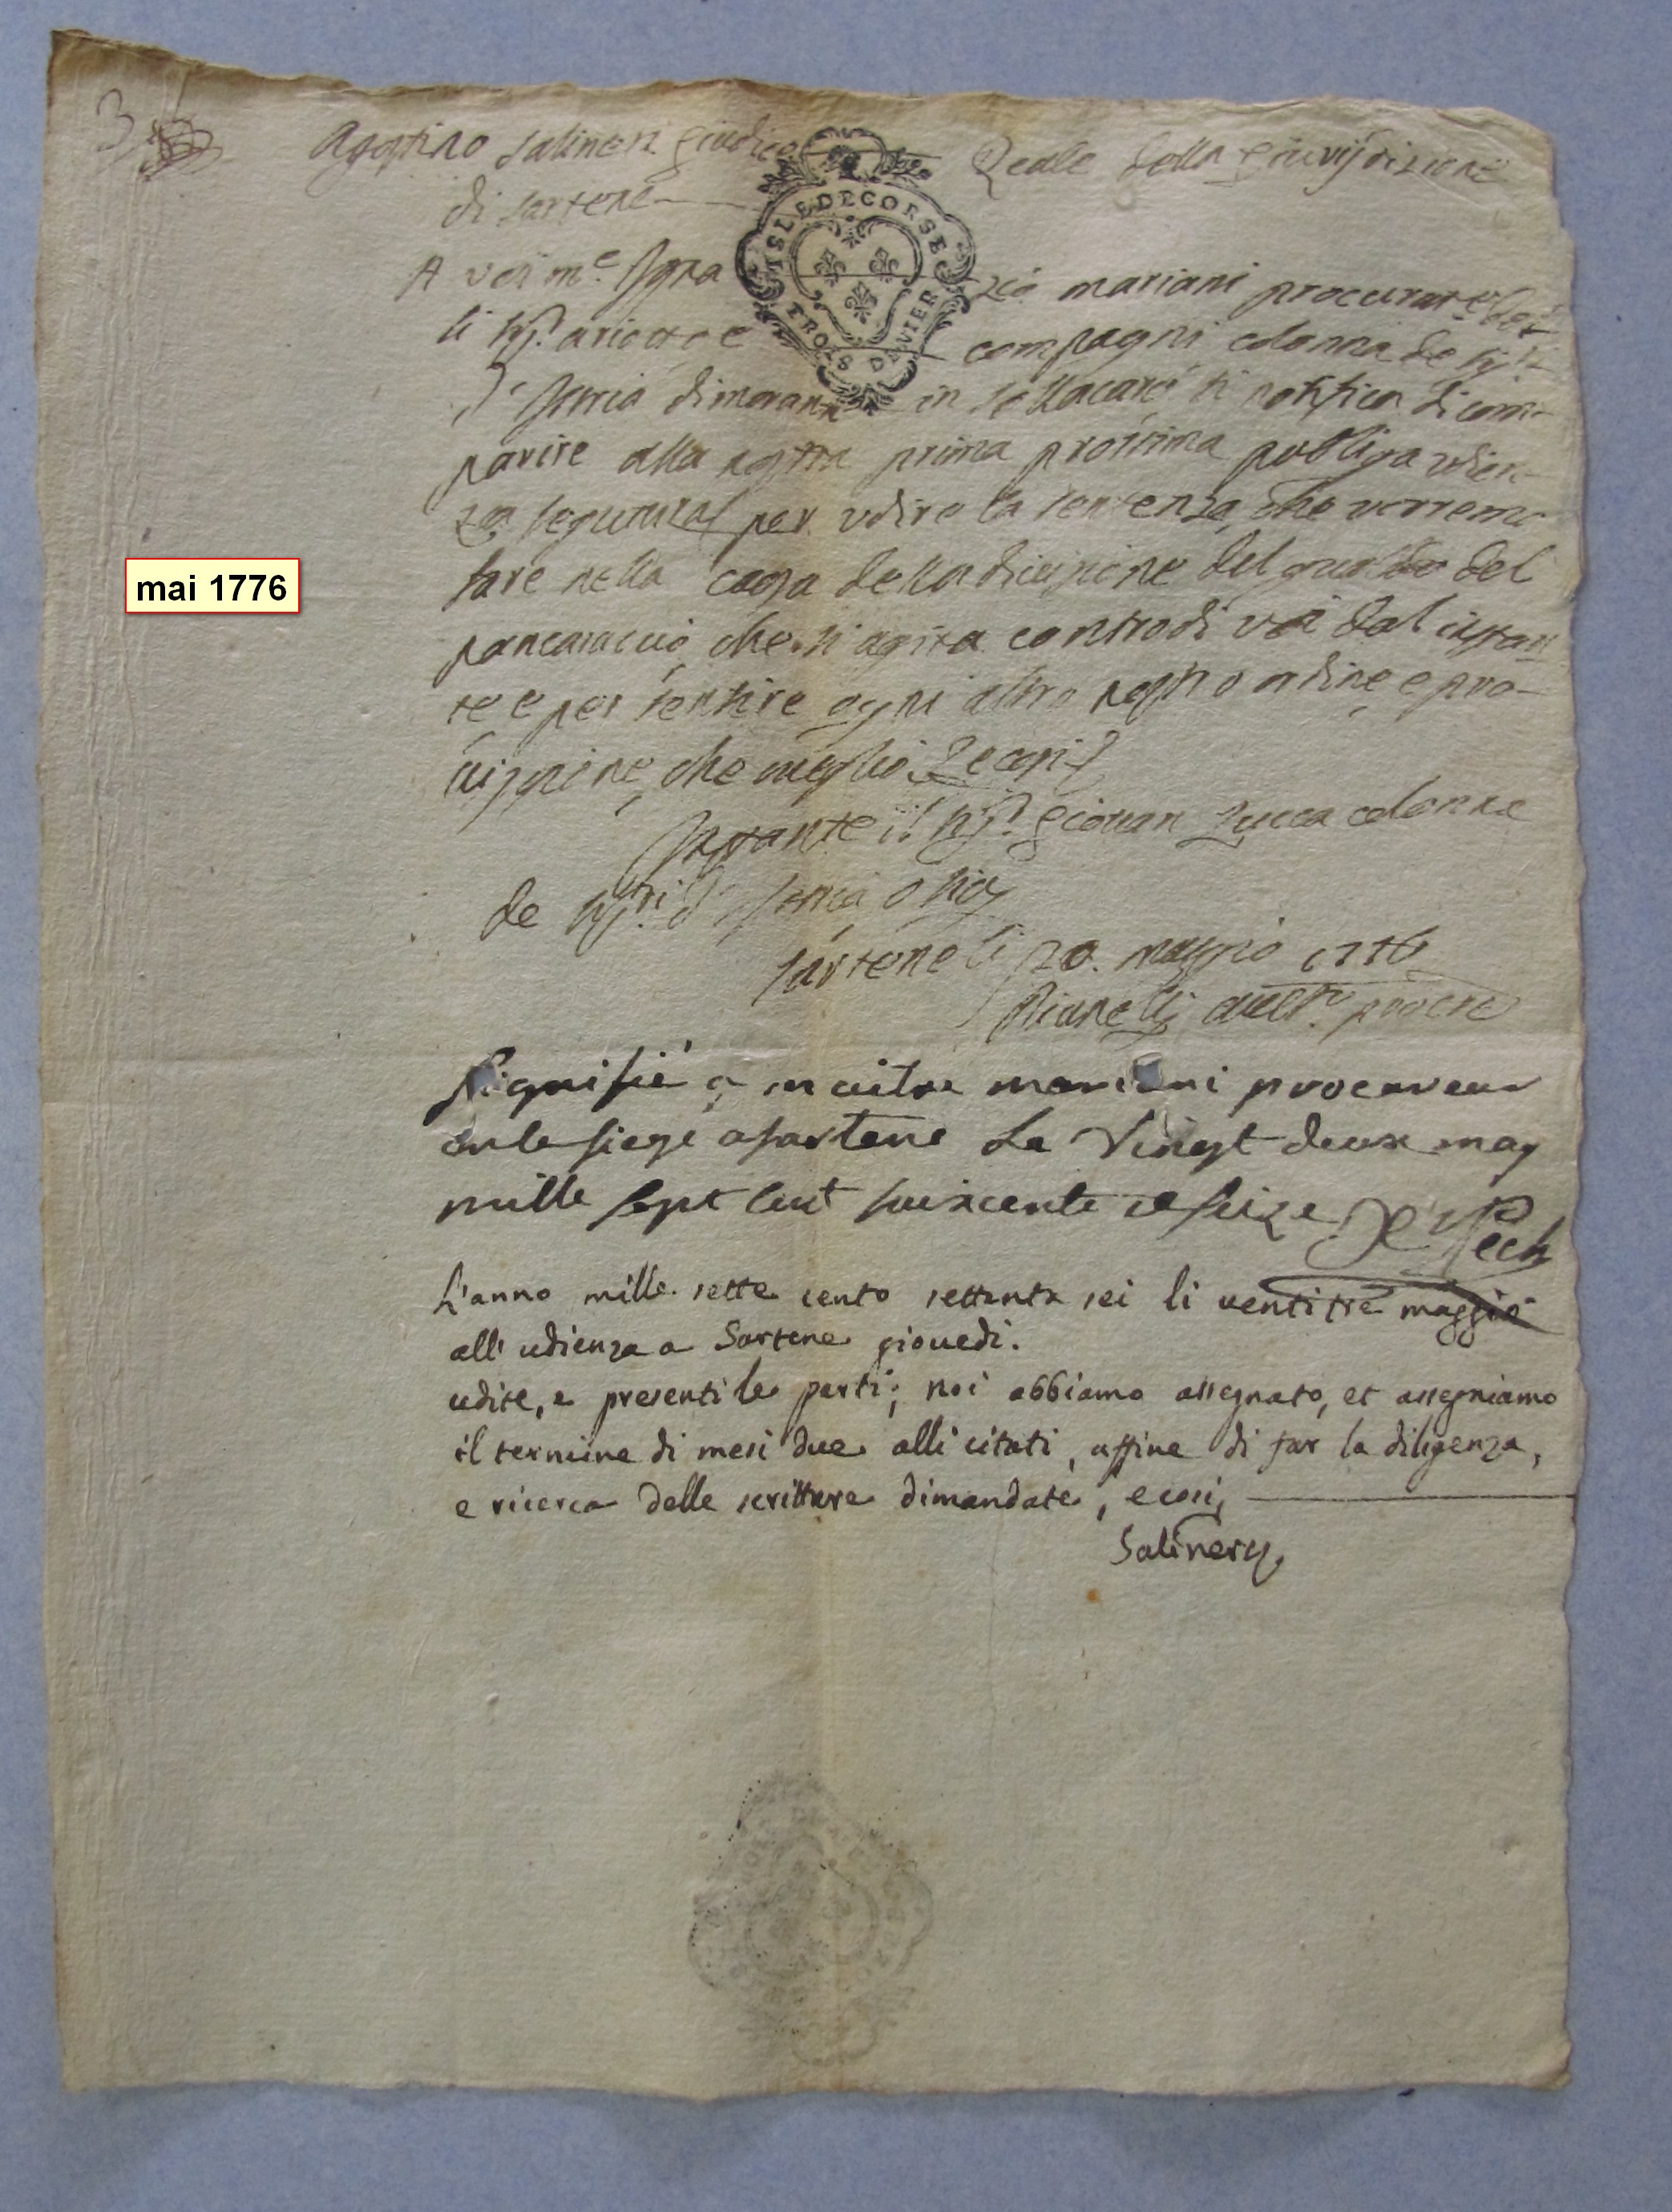 3
Agostino Salineri giudice Reale della giurisdizione
di Sartene
ISLE DE CORSE
TROIS DENIERS
A voi m.e Igna zio mariani procuratore
li Sig.ri e compagni colonna de Sig.ri
d'Istria dimoranti in Sollacarò si notifica di com-
parire alla nostra prima prossima publiga udien-
za segutura per udire la sentenza che verremo
fare nella causa della divisione del del
che si agita contro di voi dal istan
te e per sentire ogni altro nostro ordine e pro-
visione che meglio e cosi
Istante il Sig.r Giovan Lucca colonna
de Sig.ri d'Istria
Sartene li 20. maggio 1776
mai 1776
Signifié a maitre mariani procureur
en le siege a Sartene Le Vingt deux may
mille sept cent soixcente et seize Pech
L'anno mille sette cento settanta sei li ventitre maggio
all' udienza a Sartene giovedi.
udite, e presenti le parti; noi abbiamo assegnato, et assegniamo
il termine di mesi due alli citati, affine di far la diligenza,
e ricerca delle scritture dimandate, e cosi,
Salinery